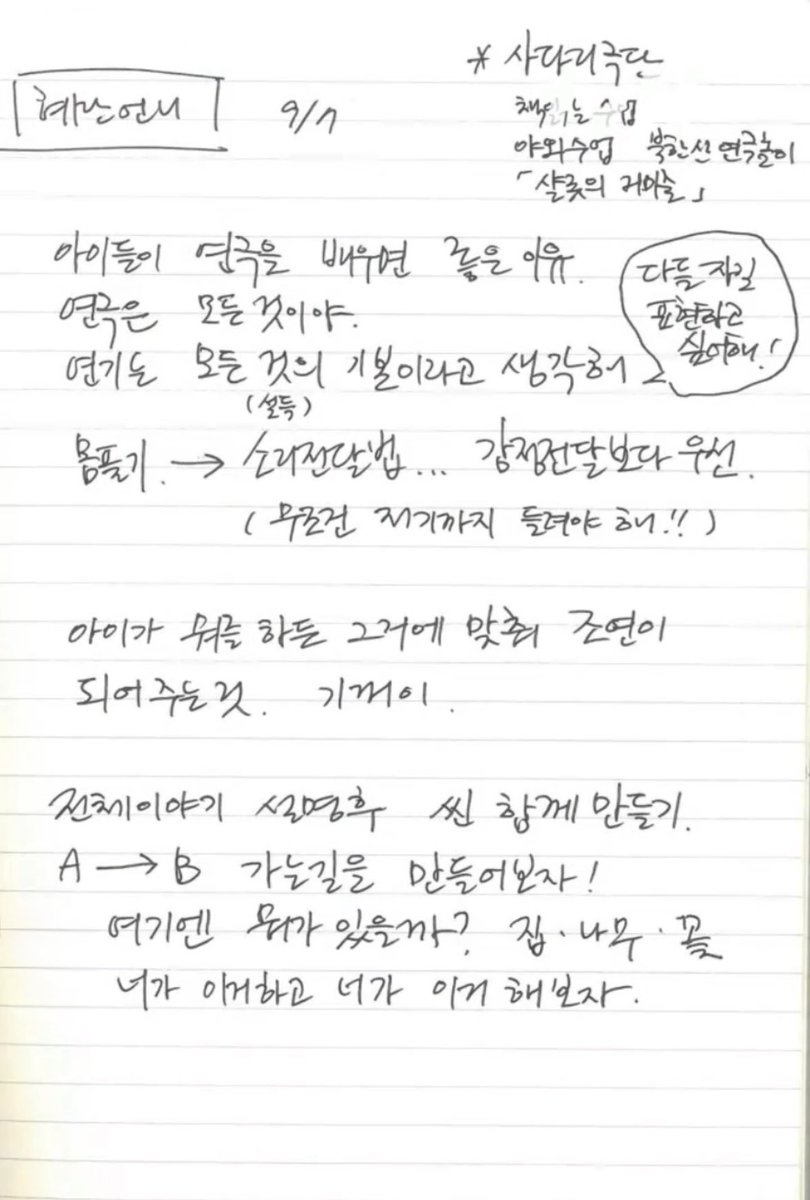 혜난언니
9/7
* 사다리극단
책읽는 수업
야외수업 북한산 연극놀이
「샬롯의 거미줄」
아이들이 연극을 배우면 좋은 이유.
연극은 모든 것이야.
연기는 모든 것의 기본이라고 생각해
(설득)
다들 자길
표현하고
싶어해!
몸풀기. → 소리전달법... 감정전달보다 우선.
(무조건 저기까지 들려야 해!!)
아이가 뭐를 하든 그거에 맞춰 조연이
되어주는것. 기꺼이.
전체이야기 설명후 씬 함께 만들기.
A → B 가는길을 만들어보자!
여기엔 뭐가 있을까? 집·나무·꽃
너가 이거하고 너가 이거 해보자.